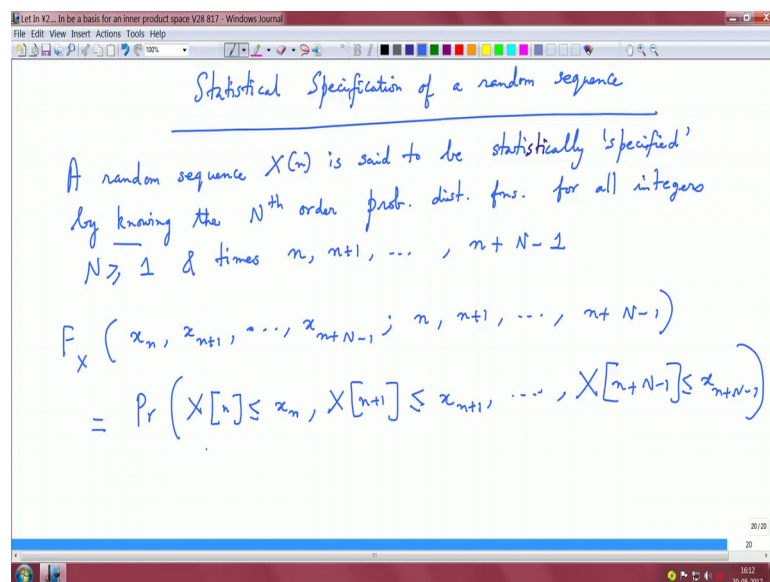 Let In ¥2... In be a basis for an inner product space V28 817 - Windows Journal
File Edit View Insert Actions Tools Help
100%
Statistical Specification of a random sequence
A random sequence X(n) is said to be statistically 'specified'
by knowing the Nth order prob. dist. fns. for all integers
N ≥ 1 & times n, n+1, ..., n+N-1
F_X (x_n, x_{n+1}, ..., x_{n+N-1}; n, n+1, ..., n+N-1)
= Pr (X[n] ≤ x_n, X[n+1] ≤ x_{n+1}, ..., X[n+N-1] ≤ x_{n+N-1})
20/20
20
16:12